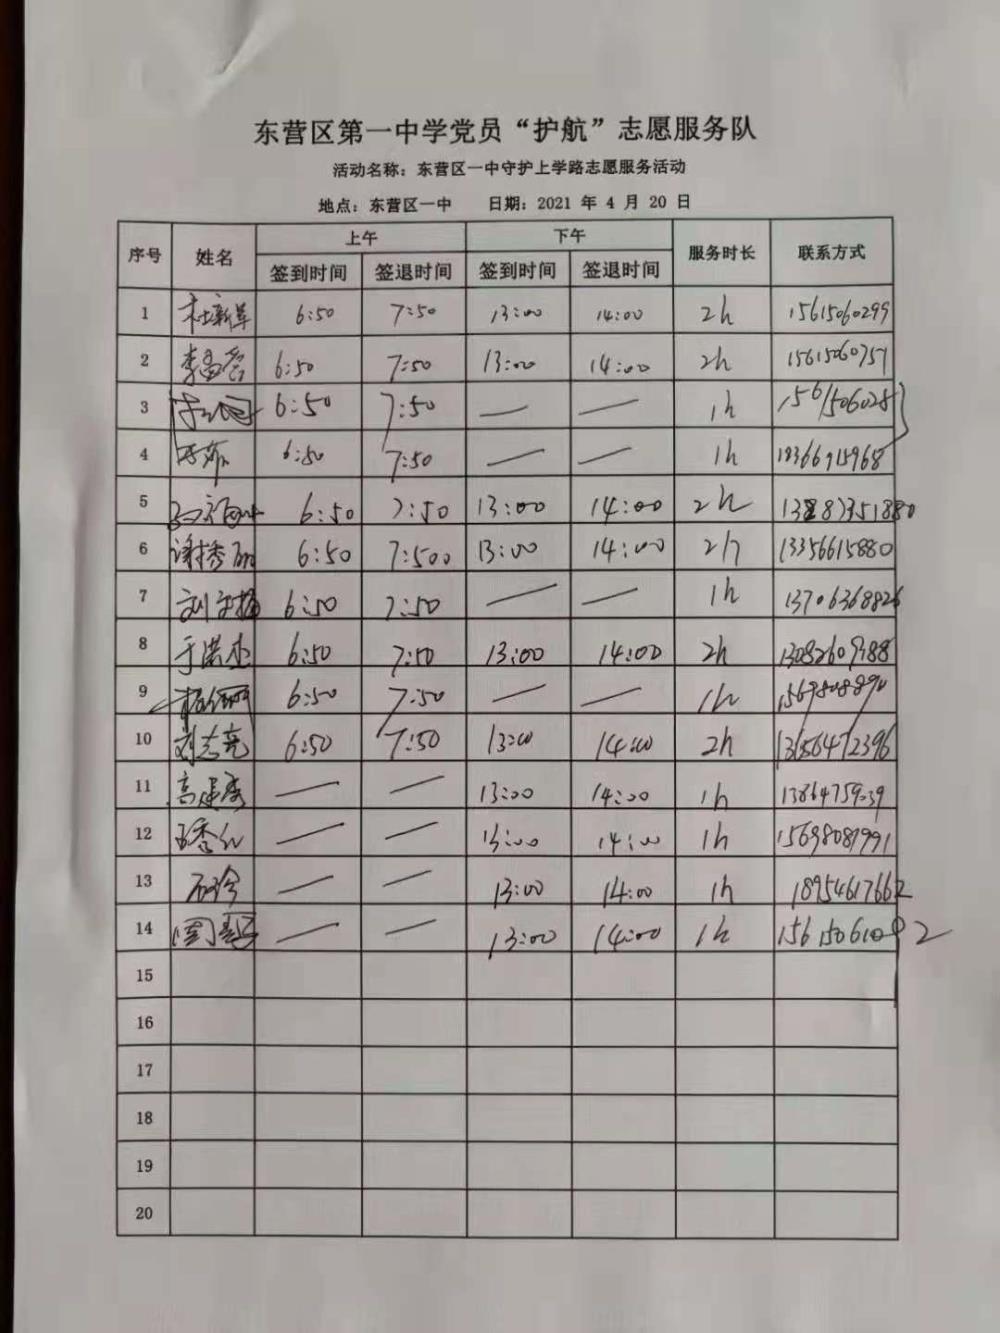 东营区第一中学党员“护航”志愿服务队
活动名称：东营区一中守护上学路志愿服务活动
地点：东营区一中 日期：2021 年 4 月 20 日
序号 姓名 上午 下午 服务时长 联系方式
签到时间 签退时间 签到时间 签退时间
1 杜新军 6:50 7:50 13:00 14:00 2h 15615060299
2 李孟营 6:50 7:50 13:00 14:00 2h 15615060757
3 6:50 7:50 — — 1h 1561506028
4 6:50 7:50 — — 1h 18366915968
5 6:50 7:50 13:00 14:00 2h
6 谢秀丽 6:50 7:500 13:00 14:00 2h 13356615880
7 刘 6:50 7:50 — — 1h 13706368826
8 于洪杰 6:50 7:50 13:00 14:00 2h 13082609188
9 6:50 7:50 — — 1h 1569808890
10 刘志亮 6:50 7:50 13:00 14:00 2h
11 高建秀 — — 13:00 14:00 1h
12 — — 13:00 14:00 1h 15698087991
13 石玲 — — 13:00 14:00 1h 18954617662
14 周 — — 13:00 14:00 1h 15615061092
15
16
17
18
19
20